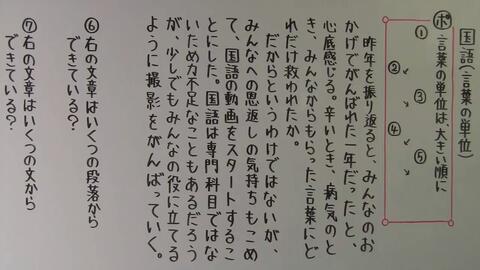 国語（言葉の単位）
ポ 言葉の単位は、大きい順に
①
② ↙
③ ↘
④ ↙
⑤ ↘
昨年を振り返ると、みんなのお
かげでがんばれた一年だったと、
心底感じる。辛いとき、病気のと
き、みんなからもらった言葉にど
れだけ救われたか。
だからというわけではないが、
みんなへの恩返しの気持ちもこめ
て、国語の動画をスタートするこ
とにした。国語は専門科目ではな
いため力不足なこともあるだろう
が、少しでもみんなの役に立てる
ように撮影をがんばっていく。
⑥右の文章はいくつの段落から
できている？
⑦右の文章はいくつの文から
できている？